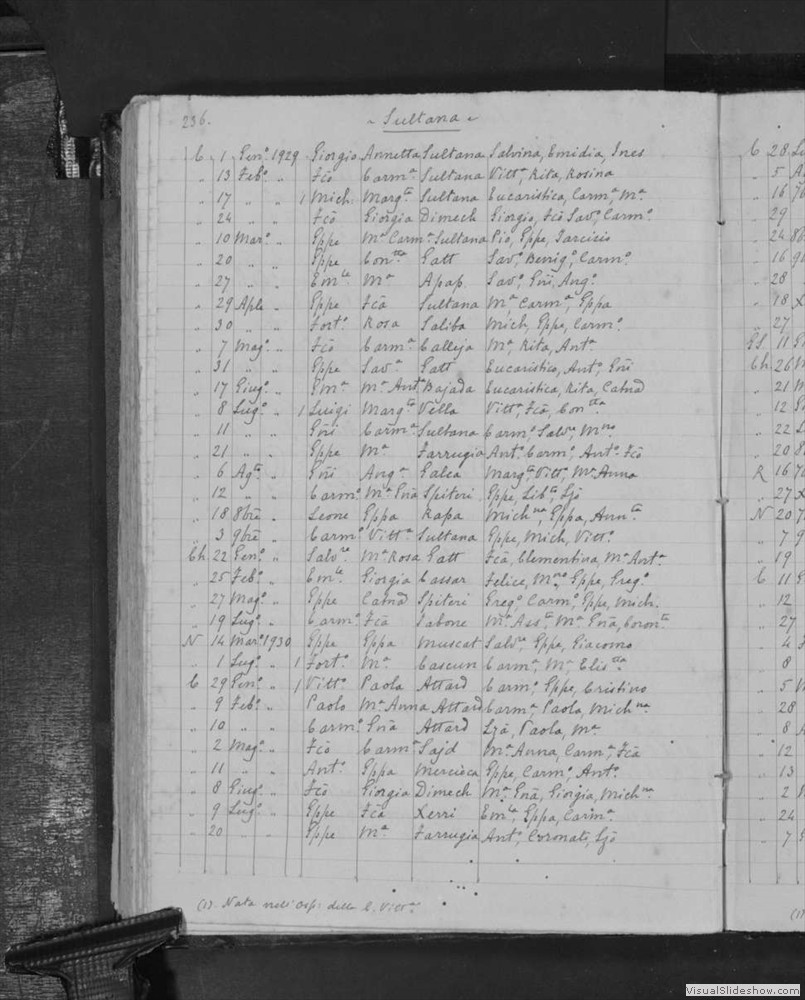 236. ~ Sultana ~
C 1 Genº 1929 Giorgio Annetta Sultana Salvina, Emidia, Ines
" 13 Febº " Fcõ Carmª Sultana Vittª, Rita, Rosina
" 17 " " 1 Mich Margta Sultana Eucaristica, Carmª, Mª
" 24 " " Fcõ Giorgia Dimech Giorgio, Fcõ Savº, Carmº
" 10 Marº " Gppe Mª Carmª Sultana Pio, Gppe, Tarcisio
" 20 " " Gppe Contta Gatt Savª, Benigº, Carmº
" 27 " " Emle Mª Apap Savº, Gñi, Angº
" 29 Aple " Gppe Fcã Sultana Mª, Carmª, Gppa
" 30 " " Fortº Rosa Saliba Mich, Gppe, Carmº
" 7 Magº " Fcõ Carmª Calleja Mª, Rita, Antª
" 31 " " Gppe Savª Gatt Eucaristico, Antº, Gñi
" 17 Giugº " Emª Mª Antª Bajada Eucaristica, Rita, Catnã
" 8 Lugº " 1 Luigi Margta Vella Vittª, Fcã, Contta
" 11 " " Gñi Carmª Sultana Carmº, Salvª, Mno
" 21 " " Gppe Mª Farrugia Antº, Carmº, Antº, Fcõ
" 6 Agto " Gñi Angª Galea Margta, Vittª, Mª Anna
" 12 " " Carmº Mª Gnã Spiteri Gppe, Libto, Ljõ
" 18 8bre " Leone Gppa Rapa Michna, Gppa, Annta
" 3 9bre " Carmº Vittª Sultana Gppe, Mich, Vittº
Ch. 22 Genº " Salvre Mª Rosa Gatt Fcã, Clementina, Mª Antª
" 25 Febº " Emle Giorgia Cassar Felice, Mno, Gppe, Gregº
" 27 Magº " Gppe Catnã Spiteri Gregº, Carmº, Gppe, Mich.
" 19 Lugº " Carmº Fcã Tabone Mª Assta, Mª Gnã, Coronta
N 14 Marº 1930 Gppe Gppa Muscat Salvre, Gppe, Giacomo
" 1 Lugº " 1 Fortº Mª Cascun Carmª, Mª Elistta
C 29 Genº " 1 Vittº Paola Attard Carmº, Gppe, Cristino
" 9 Febº " Paolo Mª Anna Attard Carmª, Paola, Michna
" 10 " " Carmº Gnã Attard Ljã, Paola, Mª
" 2 Magº " Fcõ Carmª Sajd Mª Anna, Carmª, Fcã
" 11 " " Antº Gppa Mercieca Gppe, Carmº, Antº
" 8 Giugº " Fcõ Giorgia Dimech Mª Gnã, Giorgia, Michna
" 9 Lugº " Gppe Fcã Xerri Emla, Gppa, Carmª
" 20 Gppe Mª Farrugia Antº, Coronato, Ljõ
(1). Nata nell' Osp: della C. Vittª
VisualSlideshow.com